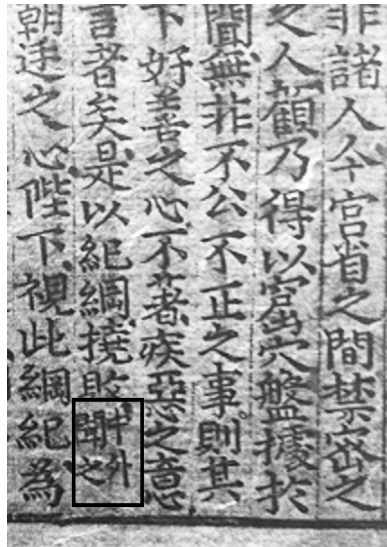 非諸人今宮省之間禁密之
之人顧乃得以窟穴盤據於
聞無非不公不正之事。則其
下好善之心不著疾惡之意
言者矣是以紀綱撓敗中外聞之
朝廷之心陛下視此綱紀為